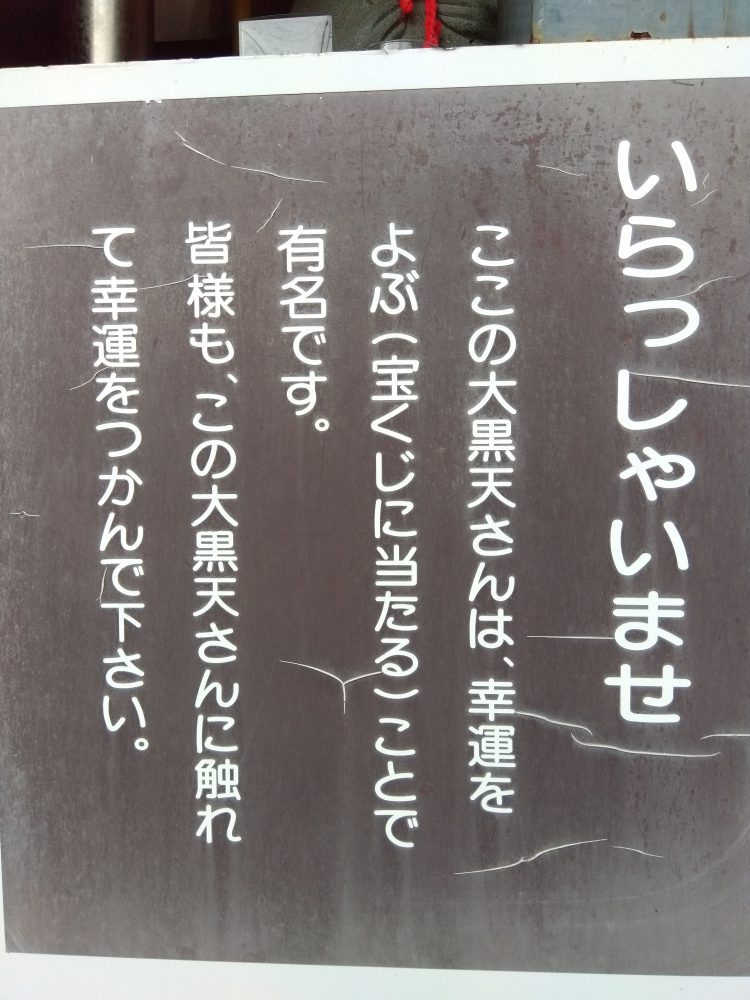 いらっしゃいませ
ここの大黒天さんは、幸運を
よぶ(宝くじに当たる)ことで
有名です。
皆様も、この大黒天さんに触れ
て幸運をつかんで下さい。